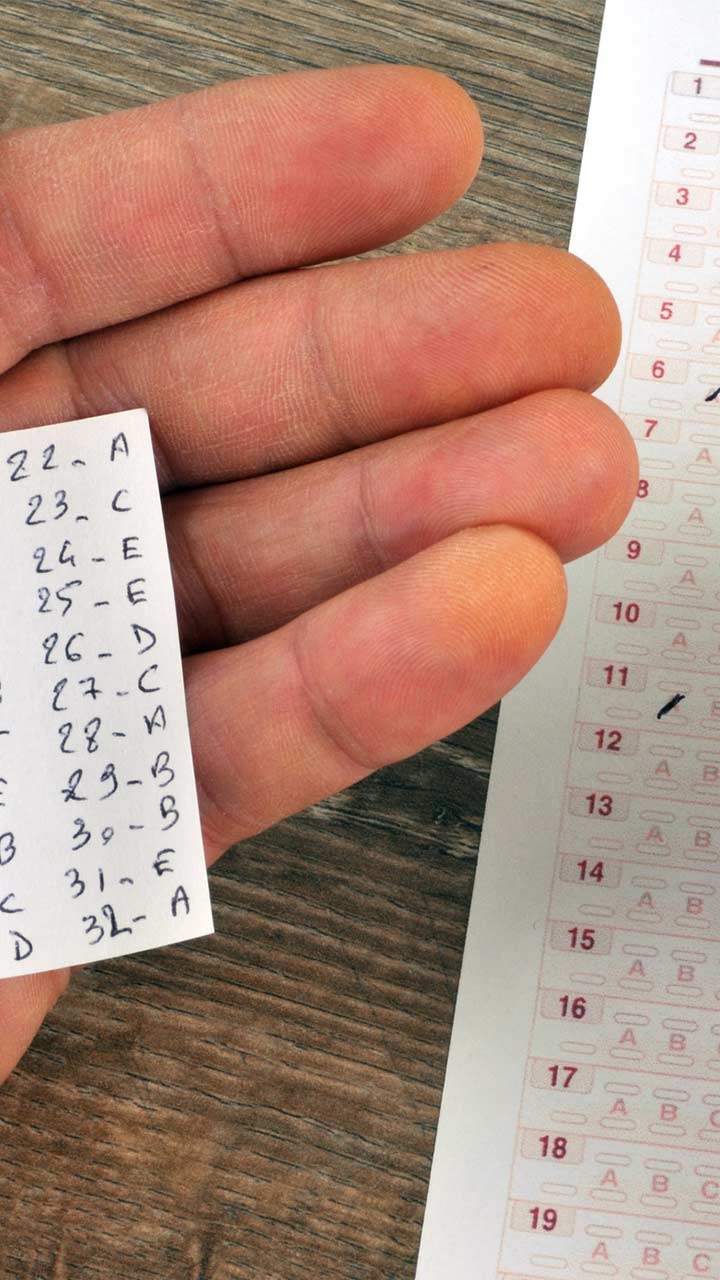 22- A
23- C
24- E
25- E
26- D
27- C
28- A
29- B
B 30- B
C 31- E
D 32- A
1
2
3
4
5
6
7
A
8
A
9
A
10
A
11
B
12
A B
13
A B
14
A B
15
A B
16
A B
17
A B C
18
A B C
19
A B C